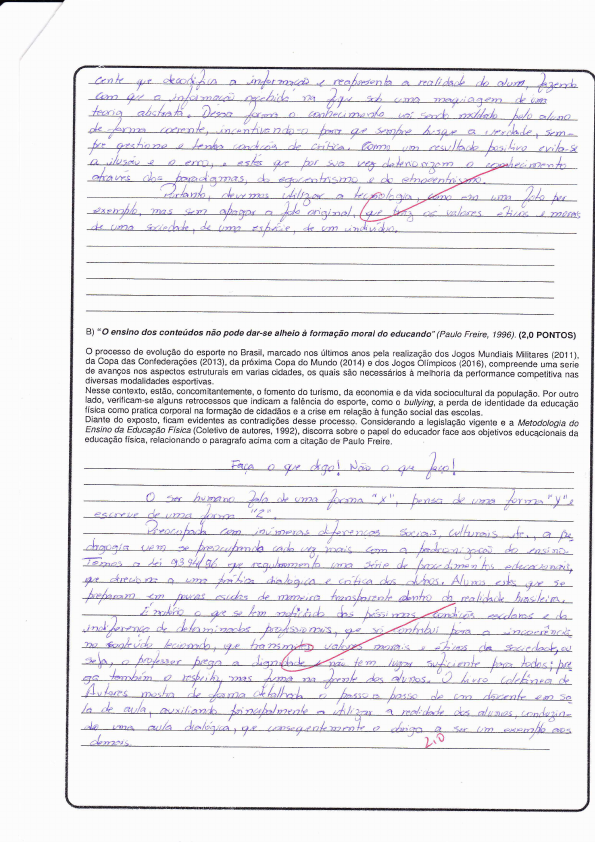 cente que decodifica a informação e reapresenta a realidade do aluno, fazendo
com que a informação recebida na fique sob uma maquiagem de um
teoria abstrata. Dessa forma o conhecimento vai sendo moldado pelo aluno
de forma coerente, incentivando-o para que sempre busque a verdade, sem-
pre questione e tenha condições de crítica. Como um resultado positivo evita-se
a ilusão e o erro, e estes que por sua vez deteriorizam o conhecimento
através dos paradigmas, do egocentrismo e do etnocentrismo.
Portanto, devemos utilizar a tecnologia, como em uma foto por
exemplo, mas sem apagar a foto original, que traz os valores éticos e morais
de uma sociedade, de uma espécie, de um indivíduo.
B) "O ensino dos conteúdos não pode dar-se alheio à formação moral do educando" (Paulo Freire, 1996). (2,0 PONTOS)
O processo de evolução do esporte no Brasil, marcado nos últimos anos pela realização dos Jogos Mundiais Militares (2011),
da Copa das Confederações (2013), da próxima Copa do Mundo (2014) e dos Jogos Olímpicos (2016), compreende uma serie
de avanços nos aspectos estruturais em varias cidades, os quais são necessários à melhoria da performance competitiva nas
diversas modalidades esportivas.
Nesse contexto, estão, concomitantemente, o fomento do turismo, da economia e da vida sociocultural da população. Por outro
lado, verificam-se alguns retrocessos que indicam a falência do esporte, como o bullying, a perda de identidade da educação
física como pratica corporal na formação de cidadãos e a crise em relação à função social das escolas.
Diante do exposto, ficam evidentes as contradições desse processo. Considerando a legislação vigente e a Metodologia do
Ensino da Educação Física (Coletivo de autores, 1992), discorra sobre o papel do educador face aos objetivos educacionais da
educação física, relacionando o paragrafo acima com a citação de Paulo Freire.
Faça o que digo! Não o que faço!
O ser humano fala de uma forma "x", pensa de uma forma "y" e
escreve de uma forma "Z".
Preocupada com inúmeras diferenças sociais, culturais, etc., a pe
dagogia vem se preocupando cada vez mais com a padronização do ensino.
Temos a Lei 9394/96 que regulamenta uma série de procedimentos educacionais,
que direciona a uma prática dialogica e crítica dos alunos. Alunos estes que se
preparam em novas escolas de maneira transparente dentro da realidade brasileira.
É notório o que se tem noticiado das péssimas condições escolares e da
indiferença de determinados profissionais, que só contribui para a incoerência
no conteúdo lecionado, que transmite valores morais e éticos da sociedade, ou
seja, o professor prega a dignidade e não tem lugar suficiente para todos; pre
ga também o respeito, mas fuma na frente dos alunos. O livro coletânea de
Autores mostra de forma detalhada o passo a passo de um docente em sa
la de aula, auxiliando principalmente a utilizar a realidade dos alunos, conduzin-
do uma aula dialógica, que consequentemente o obriga a ser um exemplo aos
demais.
2,0